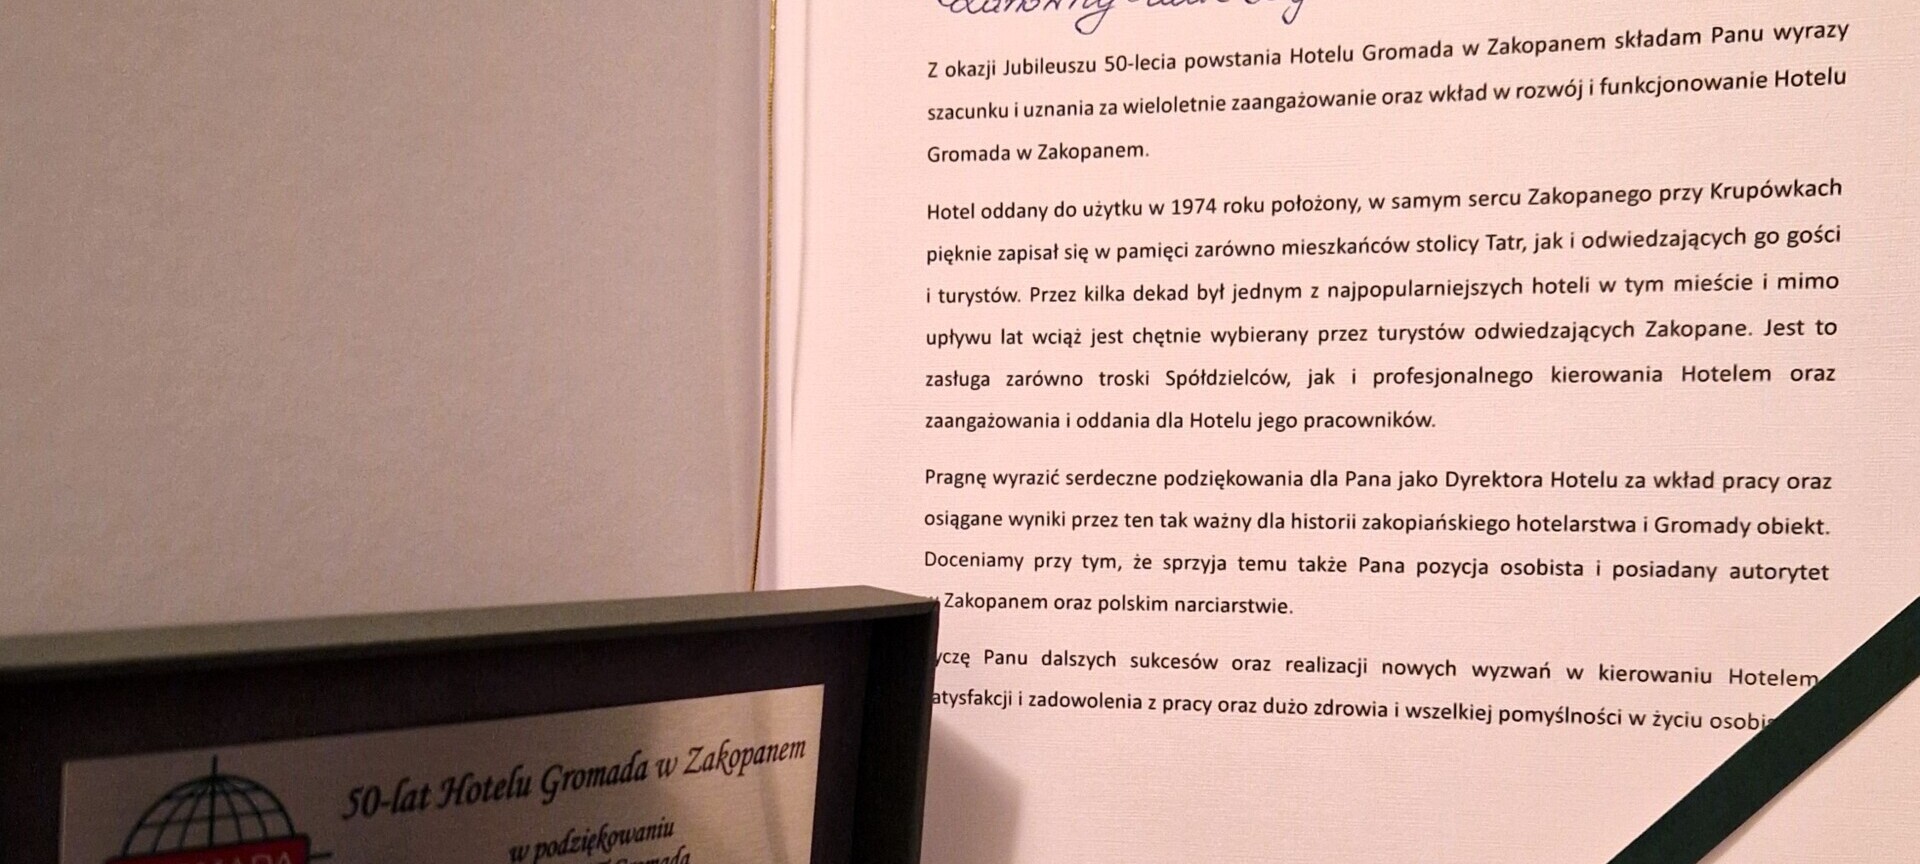 Z okazji Jubileuszu 50-lecia powstania Hotelu Gromada w Zakopanem składam Panu wyrazy
szacunku i uznania za wieloletnie zaangażowanie oraz wkład w rozwój i funkcjonowanie Hotelu
Gromada w Zakopanem.
Hotel oddany do użytku w 1974 roku położony, w samym sercu Zakopanego przy Krupówkach
pięknie zapisał się w pamięci zarówno mieszkańców stolicy Tatr, jak i odwiedzających go gości
i turystów. Przez kilka dekad był jednym z najpopularniejszych hoteli w tym mieście i mimo
upływu lat wciąż jest chętnie wybierany przez turystów odwiedzających Zakopane. Jest to
zasługa zarówno troski Spółdzielców, jak i profesjonalnego kierowania Hotelem oraz
zaangażowania i oddania dla Hotelu jego pracowników.
Pragnę wyrazić serdeczne podziękowania dla Pana jako Dyrektora Hotelu za wkład pracy oraz
osiągane wyniki przez ten tak ważny dla historii zakopiańskiego hotelarstwa i Gromady obiekt.
Doceniamy przy tym, że sprzyja temu także Pana pozycja osobista i posiadany autorytet
Zakopanem oraz polskim narciarstwie.
Panu dalszych sukcesów oraz realizacji nowych wyzwań w kierowaniu Hotelem
i zadowolenia z pracy oraz dużo zdrowia i wszelkiej pomyślności w życiu
50-lat Hotelu Gromada w Zakopanem
w podziękowaniu